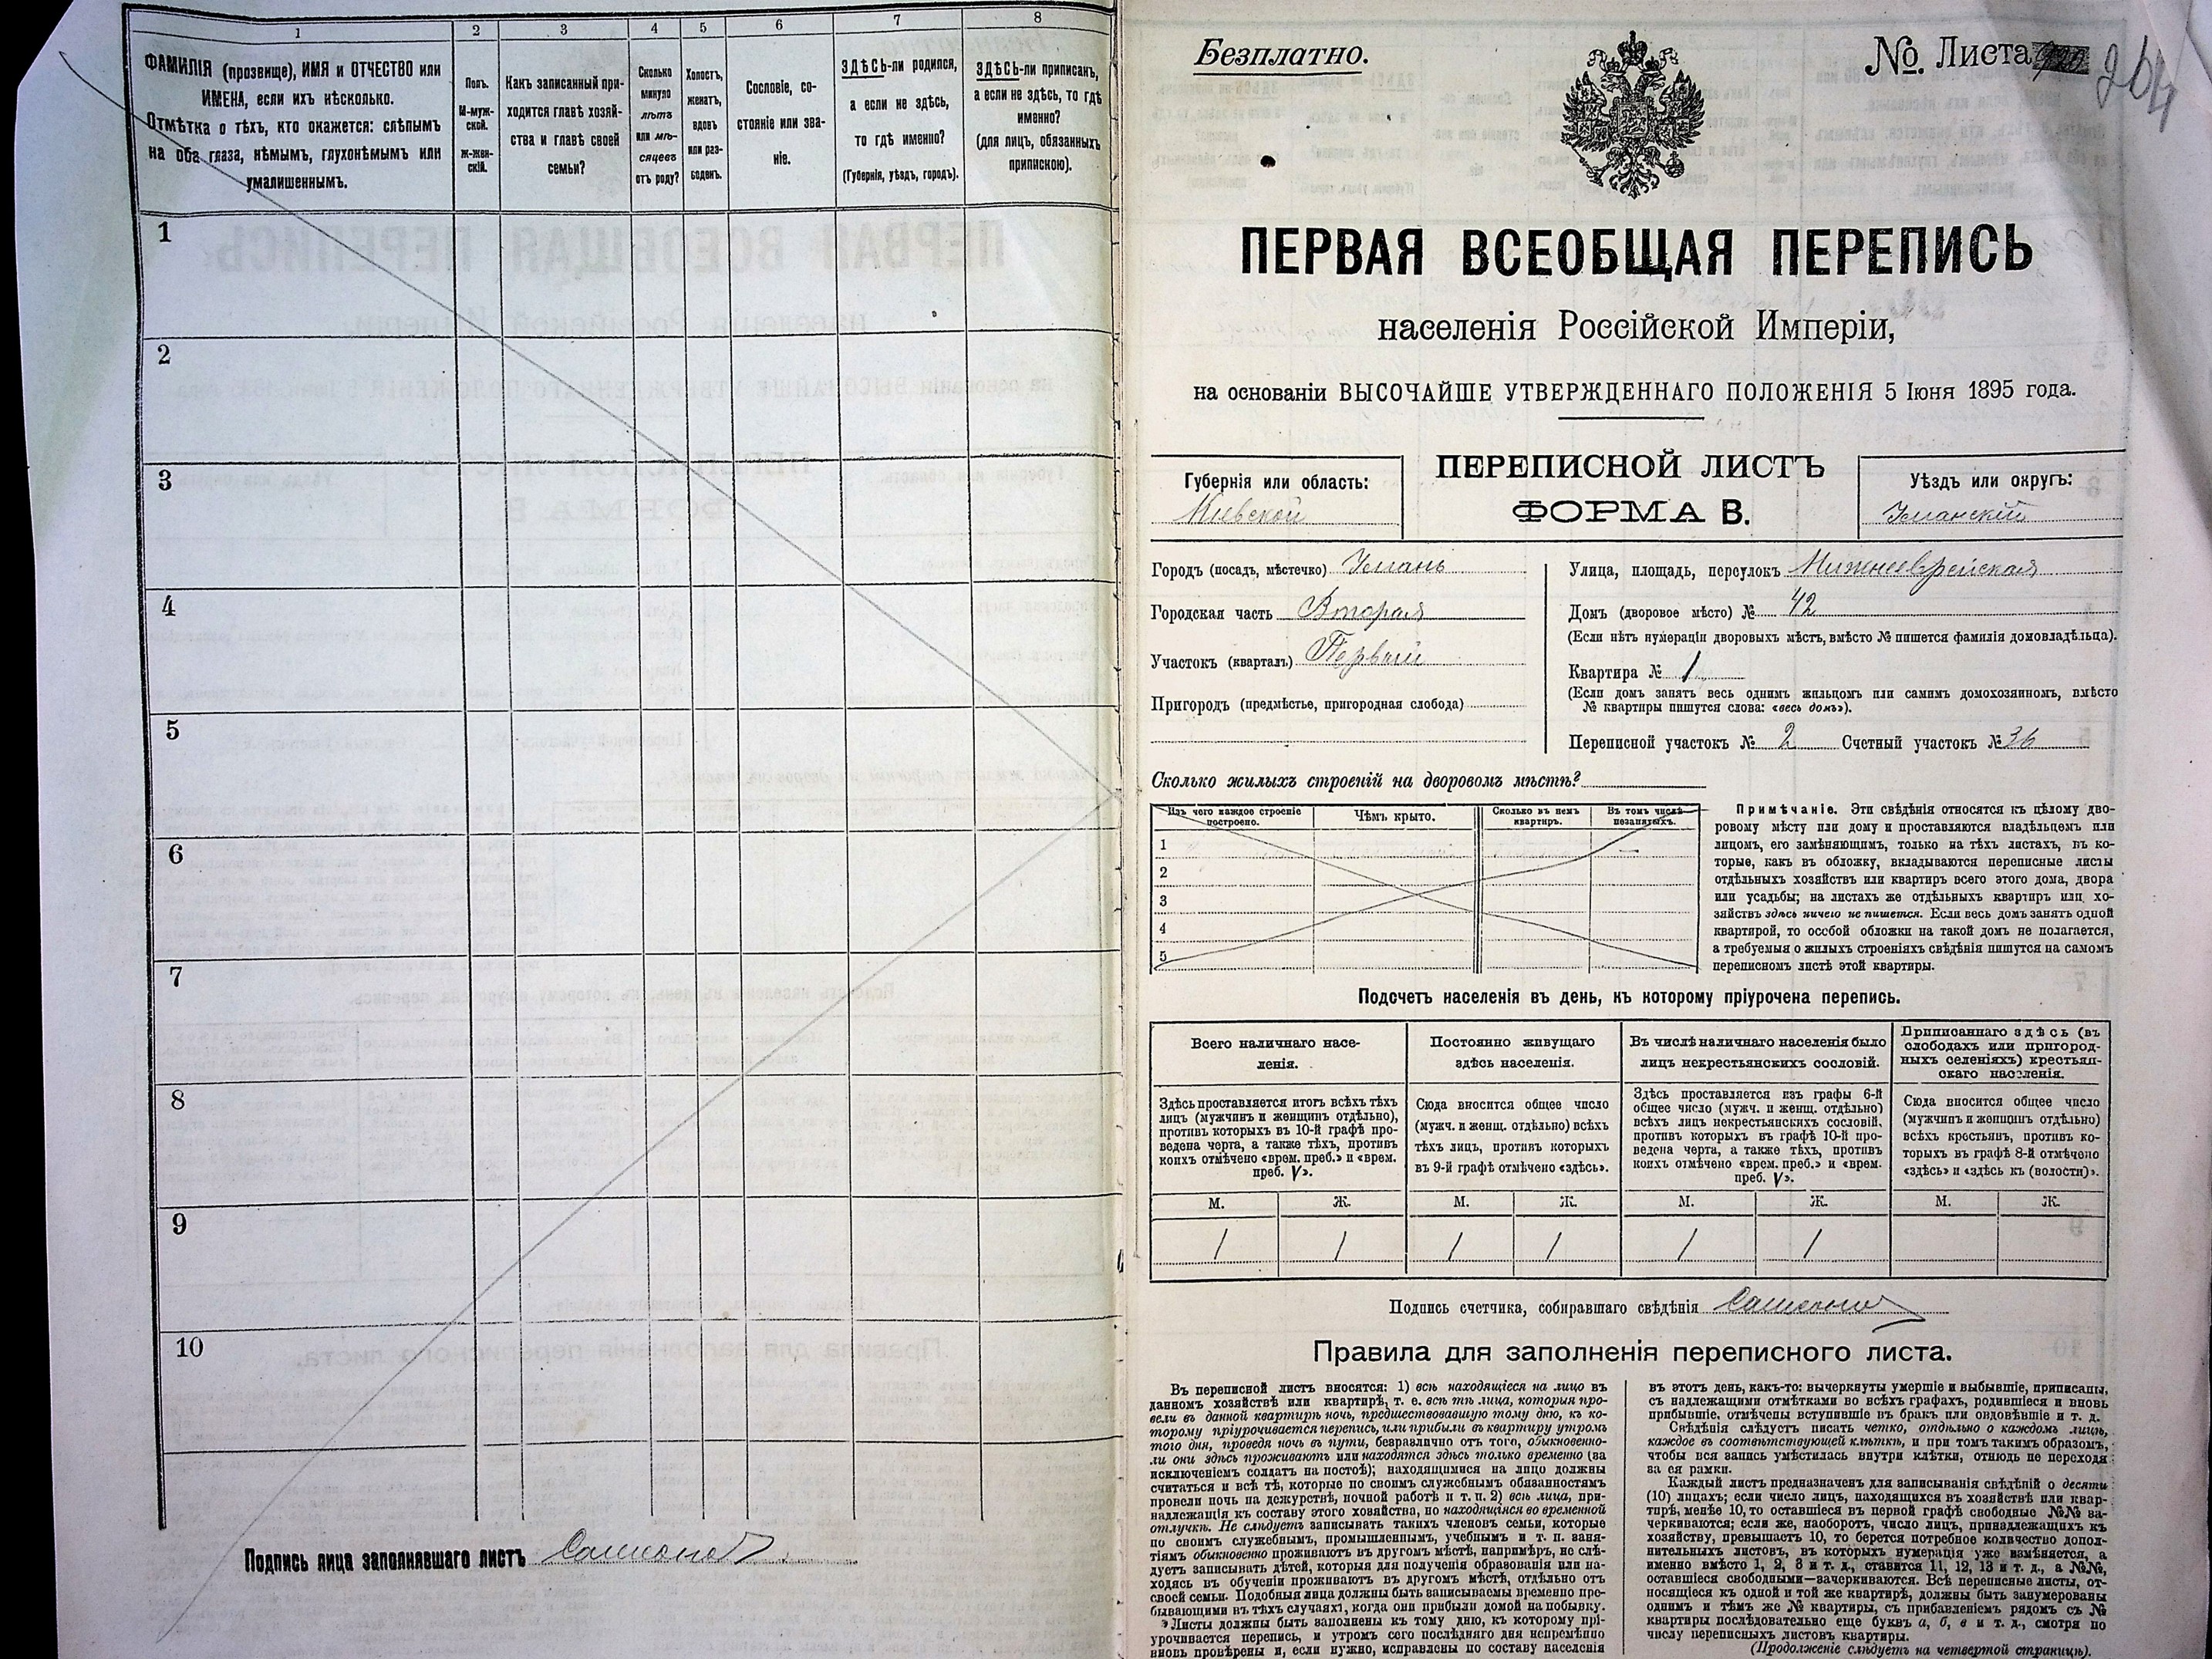 1 2 3 4 5 6 7 8
ФАМИЛІЯ (прозвище), ИМЯ и ОТЧЕСТВО или
ИМЕНА, если ихъ нѣсколько.
Отмѣтка о тѣхъ, кто окажется: слѣпымъ
на оба глаза, нѣмымъ, глухонѣмымъ или
умалишеннымъ.
Полъ.
М-муж-
ской.
Ж-жен-
скій.
Какъ записанный при-
ходится главѣ хозяй-
ства и главѣ своей
семьи?
Сколько
минуло
лѣтъ
или мѣ-
сяцевъ
отъ роду?
Холостъ,
женатъ,
вдовъ
или раз-
веденъ.
Сословіе, со-
стояніе или зва-
ніе.
ЗДѢСЬ-ли родился,
а если не здѣсь,
то гдѣ именно?
(Губернія, уѣздъ, городъ).
ЗДѢСЬ-ли приписанъ,
а если не здѣсь, то гдѣ
именно?
(для лицъ, обязанныхъ
припискою).
1
2
3
4
5
6
7
8
9
10
Подпись лица заполнявшаго листъ
Безплатно.
№ Листа 264
ПЕРВАЯ ВСЕОБЩАЯ ПЕРЕПИСЬ
населенія Россійской Имперіи,
на основаніи ВЫСОЧАЙШЕ УТВЕРЖДЕННАГО ПОЛОЖЕНІЯ 5 Іюня 1895 года.
Губернія или область:
Кіевской
ПЕРЕПИСНОЙ ЛИСТЪ
ФОРМА В.
Уѣздъ или округъ:
Уманскій
Городъ (посадъ, мѣстечко) Умань
Городская часть Вторая
Участокъ (кварталъ) Первый
Пригородъ (предмѣстье, пригородная слобода)
Улица, площадь, переулокъ Нижнееврейская
Домъ (дворовое мѣсто) № 42
(Если нѣтъ нумераціи дворовыхъ мѣстъ, вмѣсто № пишется фамилія домовладѣльца).
Квартира № 1
(Если домъ занятъ весь однимъ жильцомъ или самимъ домохозяиномъ, вмѣсто
№ квартиры пишутся слова: «весь домъ»).
Переписной участокъ № 2 Счетный участокъ № 36
Сколько жилыхъ строеній на дворовомъ мѣстѣ?
Изъ чего каждое строеніе
построено.
Чѣмъ крыто.
Сколько въ немъ
квартиръ.
Въ томъ числѣ
незанятыхъ.
1
2
3
4
5
Примѣчаніе. Эти свѣдѣнія относятся къ цѣлому дво-
ровому мѣсту или дому и проставляются владѣльцемъ или
лицомъ, его замѣняющимъ, только на тѣхъ листахъ, въ ко-
торые, какъ въ обложку, вкладываются переписные листы
отдѣльныхъ хозяйствъ или квартиръ всего этого дома, двора
или усадьбы; на листахъ же отдѣльныхъ квартиръ или хо-
зяйствъ здѣсь ничего не пишется. Если весь домъ занятъ одной
квартирой, то особой обложки на такой домъ не полагается,
а требуемыя о жилыхъ строеніяхъ свѣдѣнія пишутся на самомъ
переписномъ листѣ этой квартиры.
Подсчетъ населенія въ день, къ которому пріурочена перепись.
Всего наличнаго насе-
ленія.
Постоянно живущаго
здѣсь населенія.
Въ числѣ наличнаго населенія было
лицъ некрестьянскихъ сословій.
Приписаннаго здѣсь (въ
слободахъ или пригород-
ныхъ селеніяхъ) крестьян-
скаго населенія.
Здѣсь проставляется итогъ всѣхъ тѣхъ
лицъ (мужчинъ и женщинъ отдѣльно),
противъ которыхъ въ 10-й графѣ про-
ведена черта, а также тѣхъ, противъ
коихъ отмѣчено «врем. преб.» и «врем.
преб. V».
Сюда вносится общее число
(мужч. и женщ. отдѣльно) всѣхъ
тѣхъ лицъ, противъ которыхъ
въ 9-й графѣ отмѣчено «здѣсь».
Здѣсь проставляется изъ графы 6-й
общее число (мужч. и женщ. отдѣльно)
всѣхъ лицъ некрестьянскихъ сословій,
противъ которыхъ въ графѣ 10-й про-
ведена черта, а также тѣхъ, противъ
коихъ отмѣчено «врем. преб.» и «врем.
преб. V».
Сюда вносится общее число
(мужчинъ и женщинъ отдѣльно)
всѣхъ крестьянъ, противъ ко-
торыхъ въ графѣ 8-й отмѣчено
«здѣсь» и «здѣсь къ (волости)».
М. Ж. М. Ж. М. Ж. М. Ж.
1 1 1 1 1 1
Подпись счетчика, собиравшаго свѣдѣнія
Правила для заполненія переписного листа.
Въ переписной листъ вносятся: 1) всѣ находящіеся на лицо въ
данномъ хозяйствѣ или квартирѣ, т. е. всѣ тѣ лица, которыя про-
вели въ данной квартирѣ ночь, предшествовавшую тому дню, къ ко-
торому пріурочивается перепись, или прибыли въ квартиру утромъ
того дня, проведя ночь въ пути, безразлично отъ того, обыкновенно-
ли они здѣсь проживаютъ или находятся здѣсь только временно (за
исключеніемъ солдатъ на постоѣ); находящимися на лицо должны
считаться и всѣ тѣ, которые по своимъ служебнымъ обязанностямъ
провели ночь на дежурствѣ, ночной работѣ и т. п. 2) всѣ лица, при-
надлежащія къ составу этого хозяйства, но находящіяся во временной
отлучкѣ. Не слѣдуетъ записывать такихъ членовъ семьи, которые
по своимъ служебнымъ, промышленнымъ, учебнымъ и т. п. заня-
тіямъ обыкновенно проживаютъ въ другомъ мѣстѣ, напримѣръ, не слѣ-
дуетъ записывать дѣтей, которыя для полученія образованія или на-
ходясь въ обученіи проживаютъ въ другомъ мѣстѣ, отдѣльно отъ
своей семьи. Подобныя лица должны быть записываемы временно пре-
бывающими въ тѣхъ случаяхъ, когда они прибыли домой на побывку.
Листы должны быть заполнены къ тому дню, къ которому прі-
урочивается перепись, и утромъ сего послѣдняго дня непремѣнно
вновь провѣрены и, если нужно, исправлены по составу населенія
въ этотъ день, какъ-то: вычеркнуты умершіе и выбывшіе, приписаны,
съ надлежащими отмѣтками во всѣхъ графахъ, родившіеся и вновь
прибывшіе, отмѣчены вступившіе въ бракъ или овдовѣвшіе и т. д.
Свѣдѣнія слѣдуетъ писать четко, отдѣльно о каждомъ лицѣ,
каждое въ соотвѣтствующей клѣткѣ, и при томъ такимъ образомъ,
чтобы вся запись умѣстилась внутри клѣтки, отнюдь не переходя
за ея рамки.
Каждый листъ предназначенъ для записыванія свѣдѣній о десяти
(10) лицахъ; если число лицъ, находящихся въ хозяйствѣ или квар-
тирѣ, менѣе 10, то оставшіеся въ первой графѣ свободные №№ за-
черкиваются; если же, наоборотъ, число лицъ, принадлежащихъ къ
хозяйству, превышаетъ 10, то берется потребное количество допол-
нительныхъ листовъ, въ которыхъ нумерація уже измѣняется, а
именно вмѣсто 1, 2, 3 и т. д., ставится 11, 12, 13 и т. д., а №№,
оставшіеся свободными—зачеркиваются. Всѣ переписные листы, от-
носящіеся къ одной и той же квартирѣ, должны быть занумерованы
однимъ и тѣмъ же № квартиры, съ прибавленіемъ рядомъ съ №
квартиры послѣдовательно еще буквъ а, б, в и т. д., смотря по
числу переписныхъ листовъ квартиры.
(Продолженіе слѣдуетъ на четвертой страницѣ).